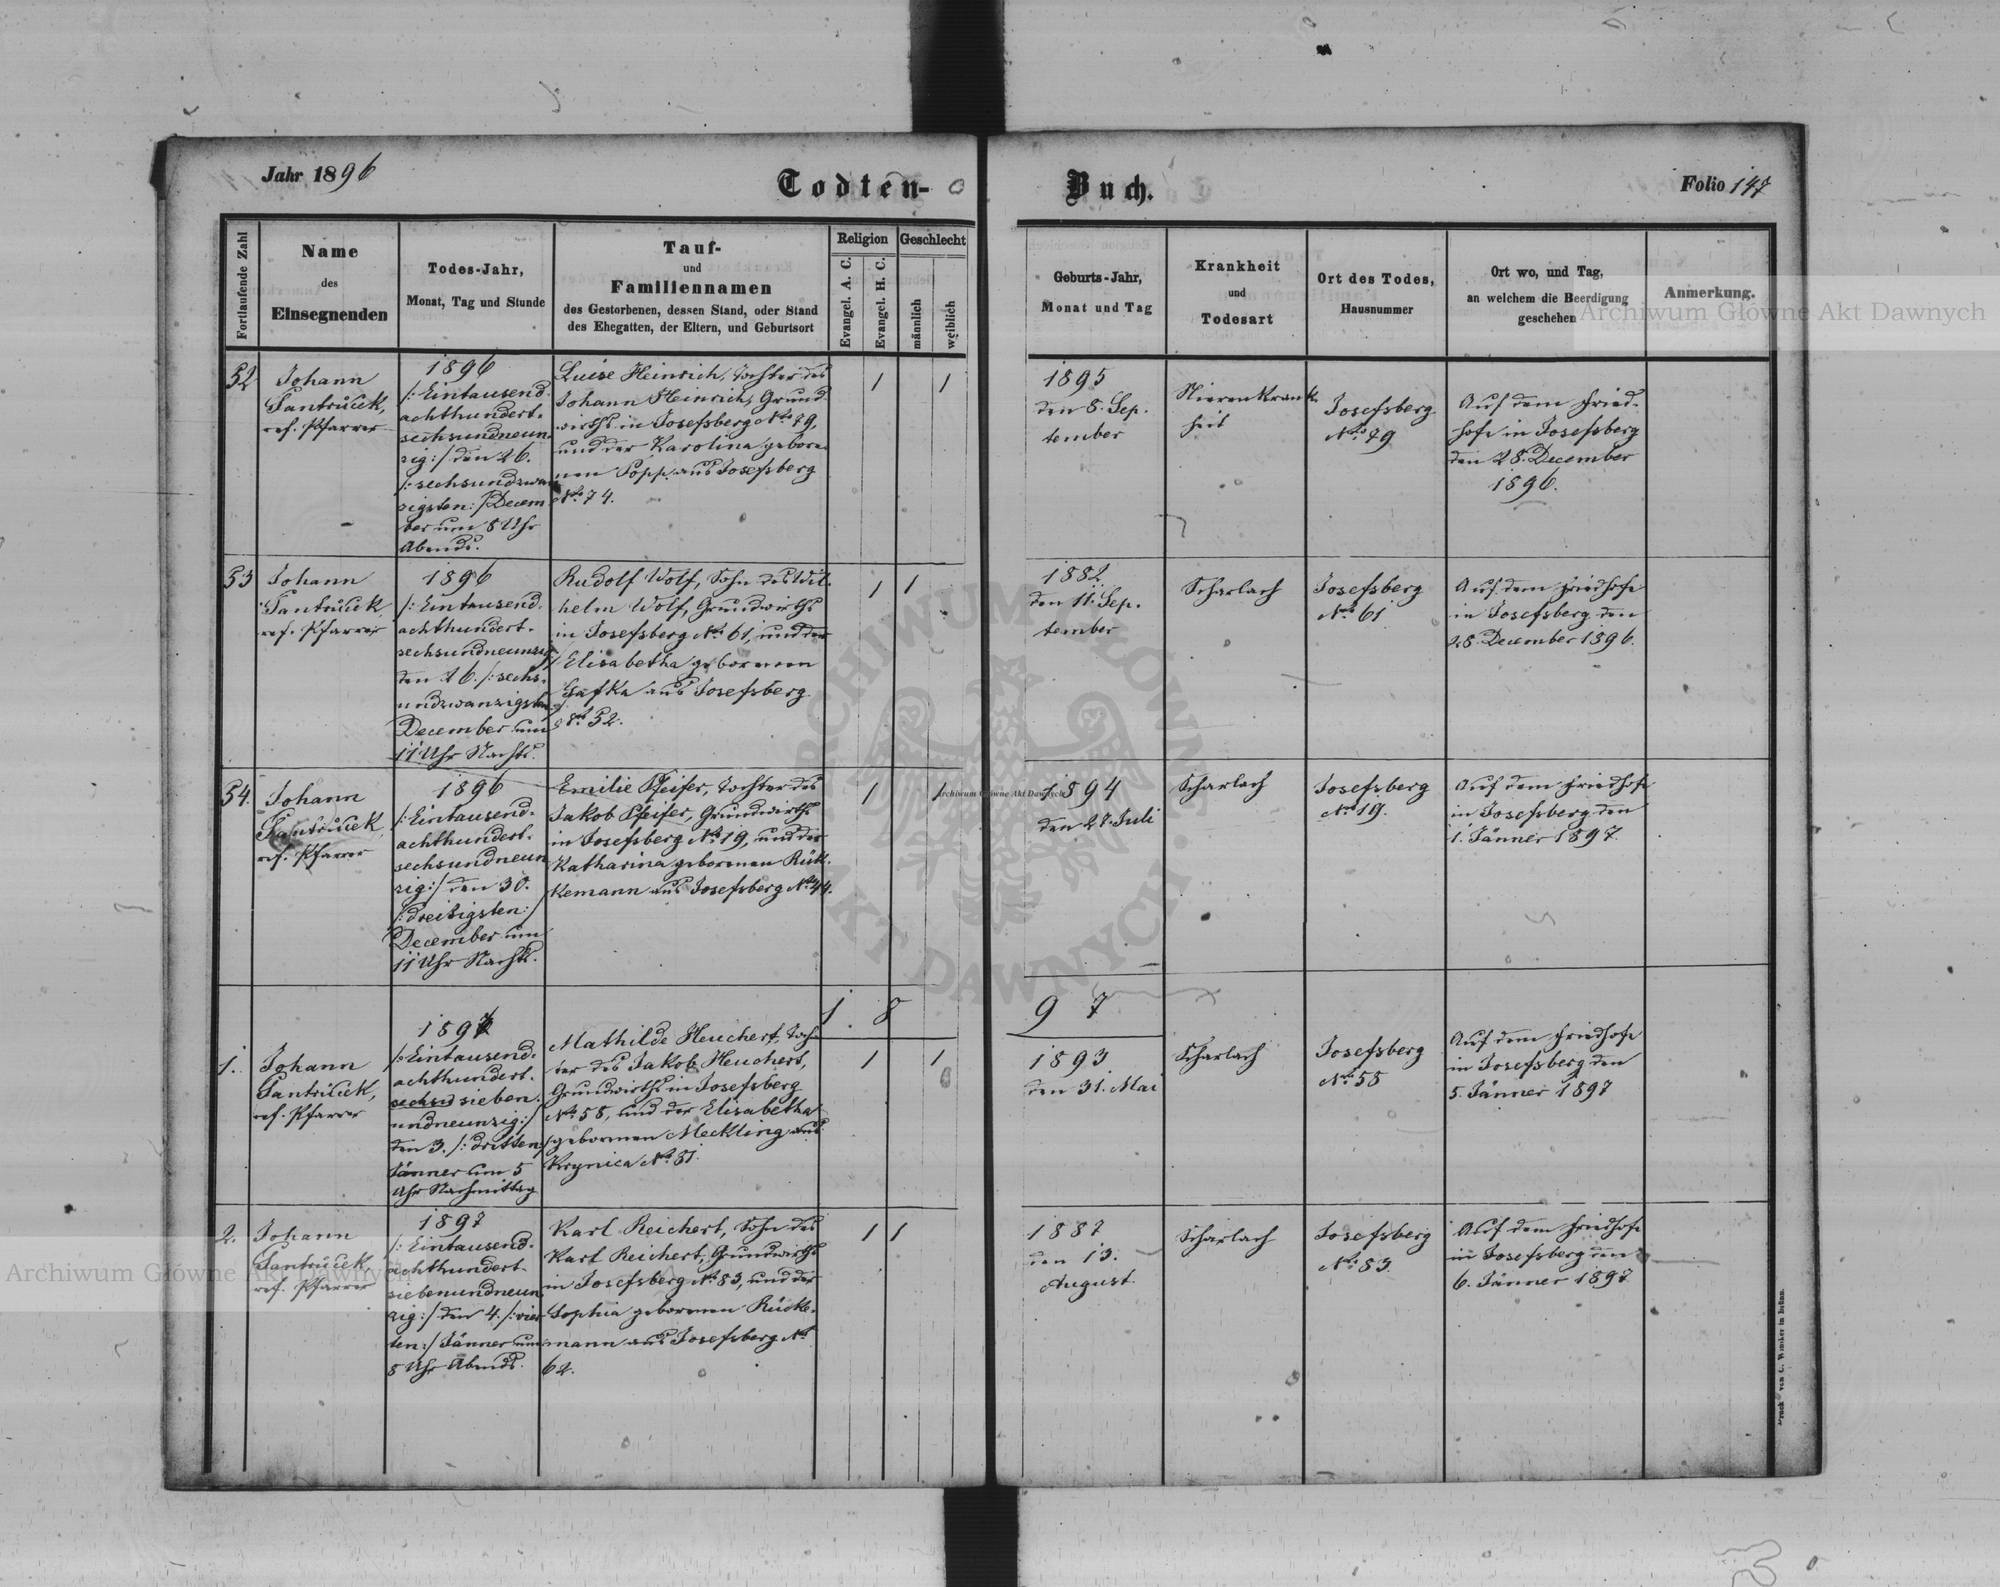 Jahr 1896
Todten-
Buch.
Folio 147
Fortlaufende Zahl
Name
des
Einsegnenden
Todes-Jahr,
Monat, Tag und Stunde
Tauf-
und
Familiennamen
des Gestorbenen, dessen Stand, oder Stand
des Ehegatten, der Eltern, und Geburtsort
Religion
Evangel. A. C.
Evangel. H. C.
Geschlecht
männlich
weiblich
Geburts-Jahr,
Monat und Tag
Krankheit
und
Todesart
Ort des Todes,
Hausnummer
Ort wo, und Tag,
an welchem die Beerdigung
geschehen
Anmerkung.
52
Johann
Santruček,
ref. Pfarrer
1896
/: Eintausend-
achthundert-
sechsundneun-
zig :/ den 26.
/: sechsundzwan
zigsten :/ Decem-
ber um 8 Uhr
Abends.
Luise Heinrich, Tochter des
Johann Heinrich, Grund-
wirths in Josefsberg No. 79,
und der Karolina gebore-
nen Popp aus Josefsberg
No. 74.
1
1
1895
den 8. Sep-
tember
Nierenkrank-
heit
Josefsberg
No. 79
Auf dem Fried-
hofe in Josefsberg
den 28. December
1896.
53
Johann
Santruček
ref. Pfarrer
1896
/: Eintausend-
achthundert-
sechsundneunzig
den 26. /: sechs-
undzwanzigsten
December um
11 Uhr Nachts.
Rudolf Wolf, Sohn des Wil-
helm Wolf, Grundwirths
in Josefsberg No. 61, und der
Elisabetha geborenen
Gafka aus Josefsberg
No. 52.
1
1
1882
den 11. Sep-
tember
Scharlach
Josefsberg
No. 61
Auf dem Friedhofe
in Josefsberg den
28. December 1896.
54.
Johann
Santruček,
ref. Pfarrer
1896
/: Eintausend-
achthundert-
sechsundneun
zig :/ den 30.
/: dreisigsten :/
December um
11 Uhr Nachts.
Emilie Pfeifer, Tochter des
Jakob Pfeifer, Grundwirths
in Josefsberg No. 19, und der
Katharina geborenen Rük-
kemann aus Josefsberg No. 44.
1
1
1894
den 27. Juli
Scharlach
Josefsberg
No. 19.
Auf dem Friedhofe
in Josefsberg den
1. Jänner 1897.
1 8 9 7
1.
Johann
Santruček,
ref. Pfarrer
1897
/: Eintausend-
achthundert-
sechsu sieben-
undneunzig :/
den 3. /: dritten :/
Jänner um 5
Uhr Nachmittag
Mathilde Heuchert, Toch-
ter des Jakob Heuchert,
Grundwirths in Josefsberg
No. 58, und der Elisabetha
geborenen Meckling aus
Krynica No. 31.
1
1
1893
den 31. Mai
Scharlach
Josefsberg
No. 58
Auf dem Friedhofe
in Josefsberg den
5. Jänner 1897
2.
Johann
Santruček,
ref. Pfarrer
1897
/: Eintausend-
achthundert
siebenundneun
zig :/ den 4. /: vier
ten :/ Jänner um
8 Uhr Abends.
Karl Reichert, Sohn des
Karl Reichert, Grundwirths
in Josefsberg No. 83, und der
Sophia geborenen Rücke-
mann aus Josefsberg No.
62.
1
1
1887
den 13.
August
Scharlach
Josefsberg
No. 83.
Auf dem Friedhofe
in Josefsberg den
6. Jänner 1897
Archiwum Główne Akt Dawnych
Archiwum Główne Akt Dawnych
Archiwum Główne Akt Dawnych
ARCHIWUM GŁÓWNE AKT DAWNYCH